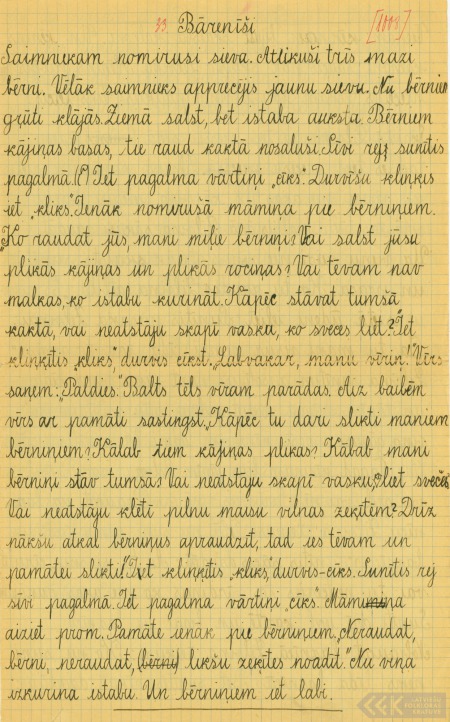 33 Bārenīši [1003]
Saimniekam nomirusi sieva. Atlikuši trīs mazi
bērni. Vēlāk saimnieks apprecējis jaunu sievu. Nu bērniem
grūti klājās. Ziemā salst, bet istaba auksta. Bērniem
kājiņas basas, tie raud kaktā nosaluši. Sīvi rej sunītis
pagalmā. (!) Iet pagalma vārtiņi „cīks”. Durvišu kliņķis
iet „kliks.” Ienāk nomirušā māmiņa pie bērniņiem.
„Ko raudat jūs, mani mīļie bērniņi? Vai salst jūsu
plikās kājiņas un plikās rociņas? Vai tēvam nav
malkas, ko istabu kurināt. Kāpēc stāvat tumšā
kaktā, vai neatstāju skapī vaska, ko sveces liet?” Iet
kliņķītis „kliks”, durvis čīkst. „Labvakar, manu vīriņ!” Vīrs
saņem: „Paldies.” Balts tēls vīram parādas. Aiz bailēm
vīrs ar pamāti sastingst. „Kāpēc tu dari slikti maniem
bērniņiem? Kālab tiem kājiņas plikas? Kābab mani
bērniņi stāv tumsā? Vai neatstāju skapī vasku, liet sveces?
Vai neatstāju klētī pilnu maisu vilnas zeķītēm? Drīz
nākšu atkal bērniņus apraudzīt, tad ies tēvam un
pamātei slikti!” Iet kliņķītis „kliks”, durvis-cīks. Sunītis rej
sīvi pagalmā. Iet pagalma vārtiņi „cīks”. Māmiņa
aiziet prom. Pamāte ienāk pie bērniņiem. „Neraudat,
bērni, neraudat, (bērni) likšu zeķītes noadīt.” Nu viņa
izkurina istabu. Un bērniņiem iet labi.
LATVIEŠU
FOLKLORAS
KRĀTUVE